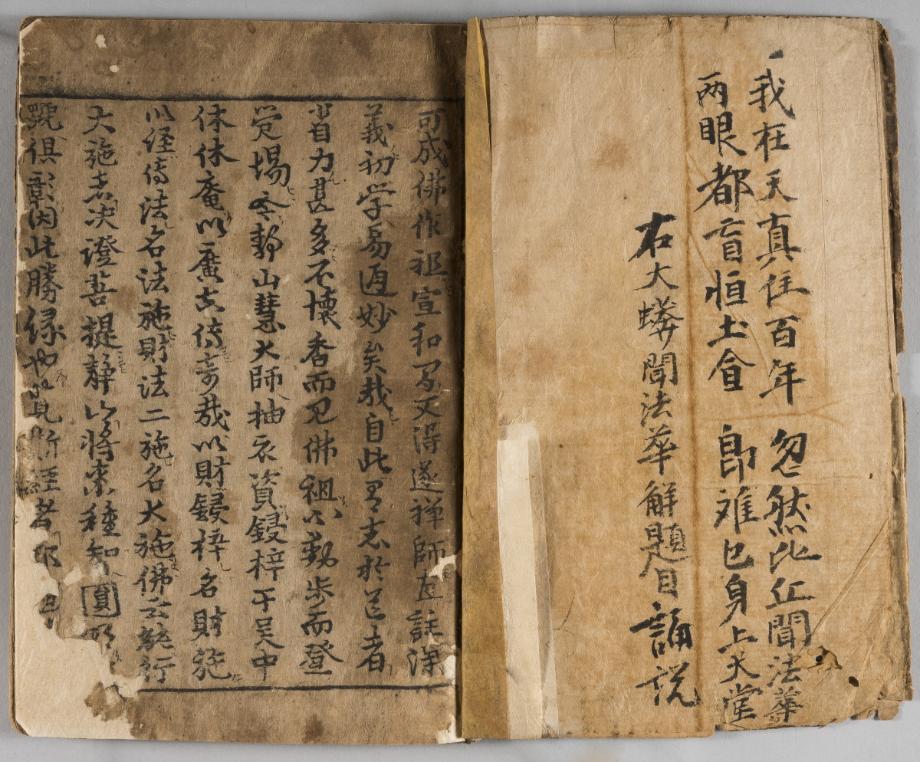 我在天真住百年　忽然比丘聞法華
両眼都盲恒土會　即难已身上天堂
右大蟒聞法華解題目誦説
可成佛作祖宣和又得遂禅師直註深
義初学易通妙矣哉自此有志於道者
省力甚多不懐香而見佛祖不動歩而登
覚場今静山慧大師抽衣資鋟梓于吴中
休休庵以廣其傳竒哉以財鋟梓名財施
以経傳法名法施財法二施名大施佛云能行
大施者决證菩提静山将来種知圓
俱彰因此勝縁